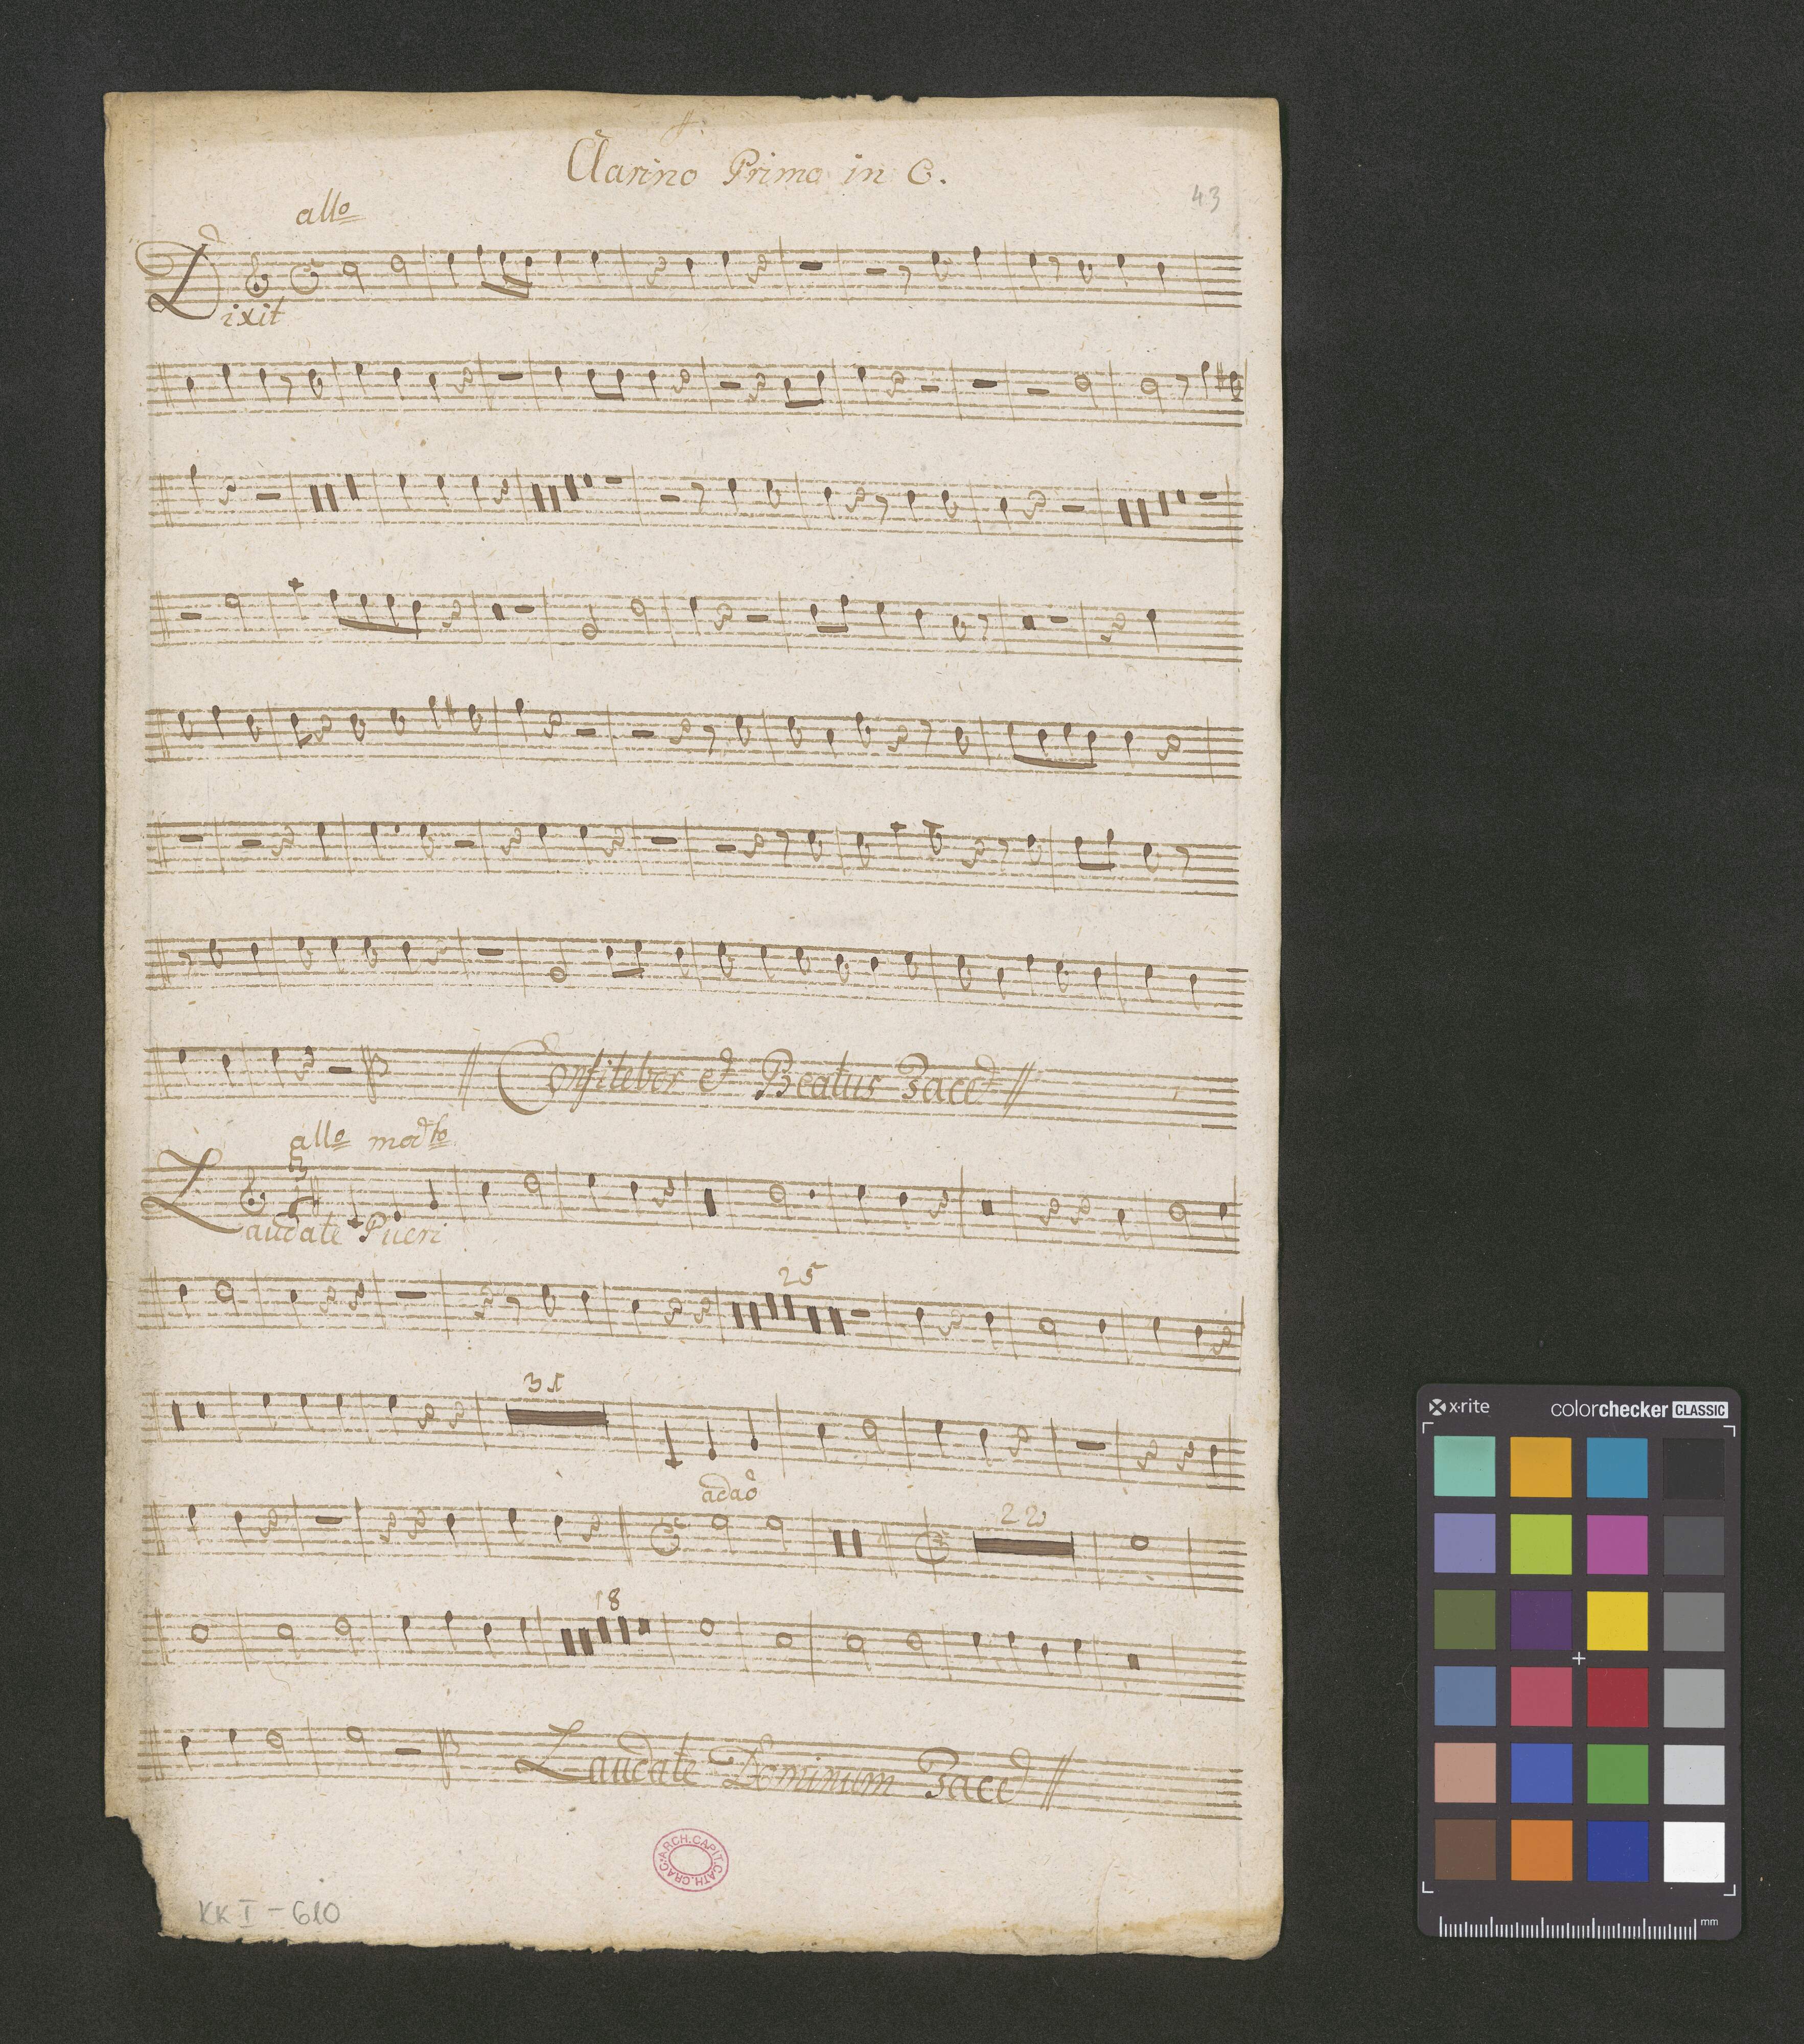 Clarino Primo in C.
43
allo
Dixit
Confitebor et Beatus Tacet
allo modto
Laudate Pueri
25
31
adao
22
18
Laudate Dominum Tacet
ARCH.CAPIT.CATH.CRAC.
KK I - 610
x·rite
colorchecker CLASSIC
mm